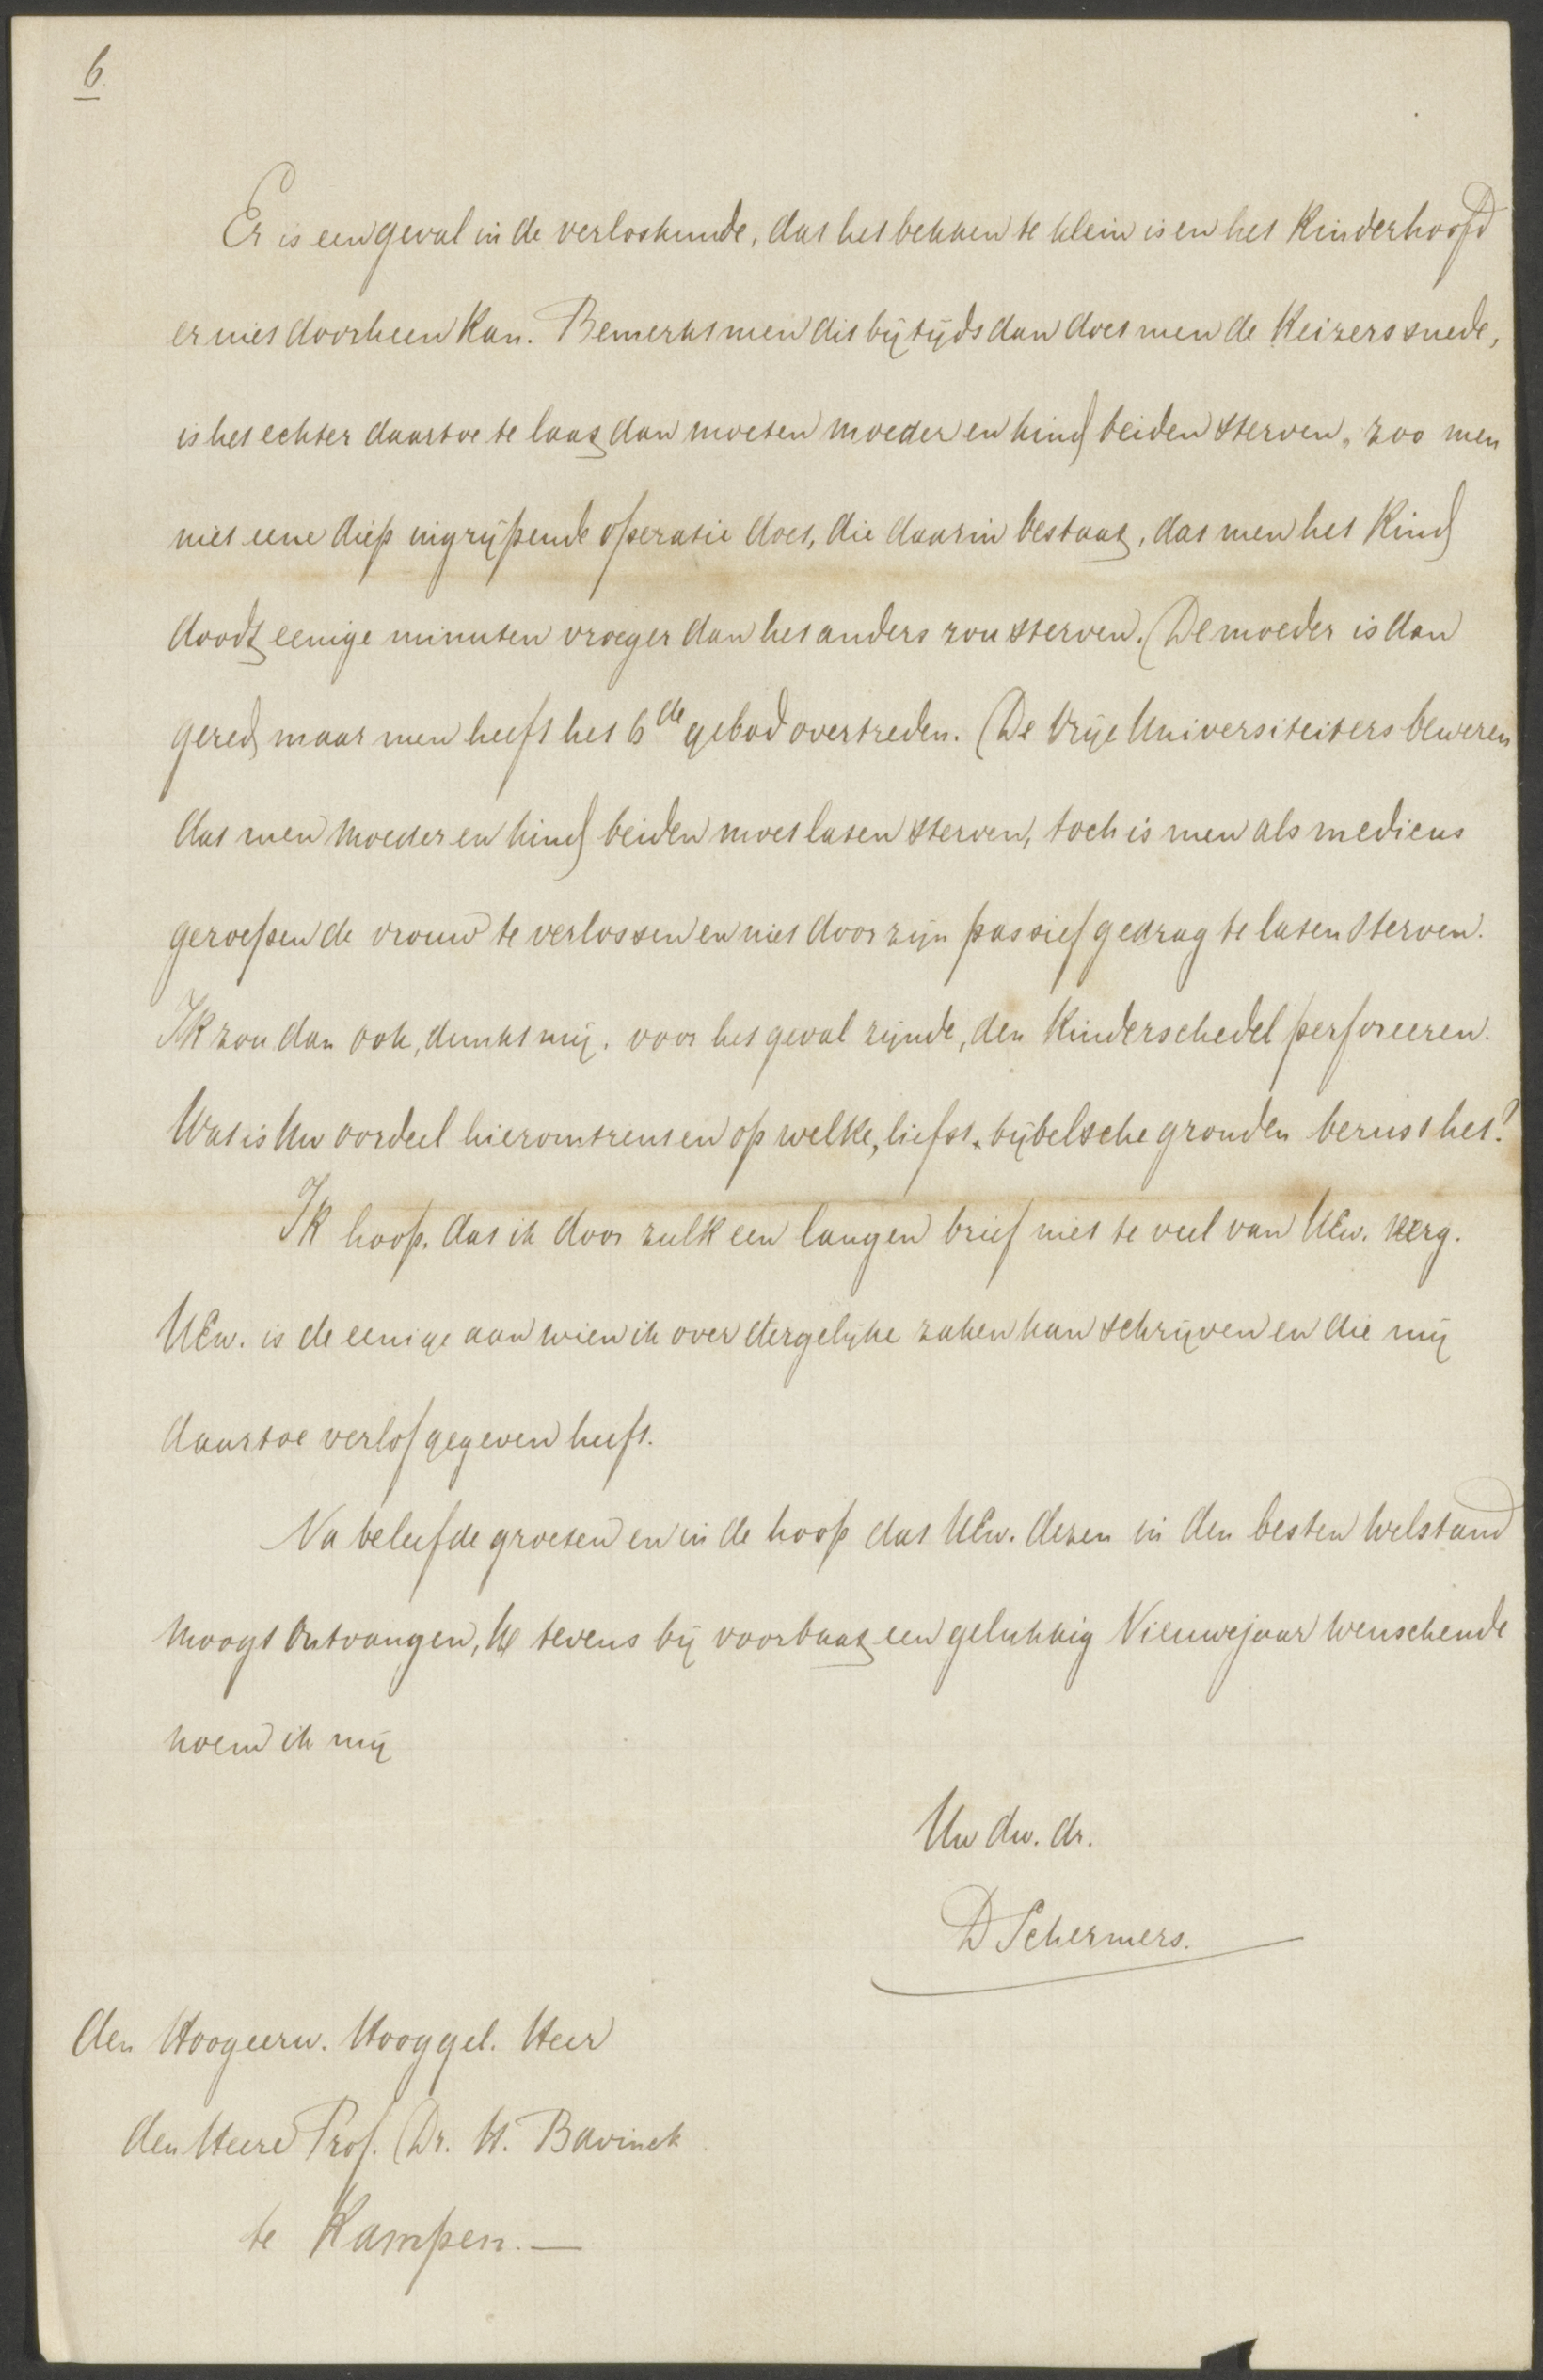 6
Er is een geval in de verloskunde, dat het bekken te klein is en het Kinderhoofd
er niet doorheen kan. Bemerkt men dit bijtijds dan doet men de Keizerssnede,
is het echter daartoe te laat dan moeten moeder en kind beiden sterven, zoo men
niet eene diep ingrijpende operatie doet, die daarin bestaat, dat men het Kind
doodt eenige minuten vroeger dan het anders zou sterven. De moeder is dan
gered maar men heeft het 6de gebod overtreden. De Vrije Universiteiters beweren
dat men moeder en kind beiden moet laten sterven, toch is men als medicus
geroepen de vrouw te verlossen en niet door zijn passief gedrag te laten sterven.
Ik zou dan ook, dunkt mij, voor het geval zijnde, den Kinderschedel perforeeren.
Wat is Uw oordeel hieromtrent en op welke, liefst bijbelsche gronden berust het?
Ik hoop, dat ik door zulk een langen brief niet te veel van UEw. verg.
UEw. is de eenige aan wien ik over dergelijke zaken kan schrijven en die mij
daartoe verlof gegeven heeft.
Na beleefde groeten en in de hoop dat UEw. dezen in den besten welstand
moogt ontvangen, U tevens bij voorbaat een gelukkig Nieuwejaar wenschende
noem ik mij
Uw dw. dr.
D Schermers.
Den Hoogeerw. Hooggel. Heer
den Heere Prof. Dr. H. Bavinck
te Kampen. —